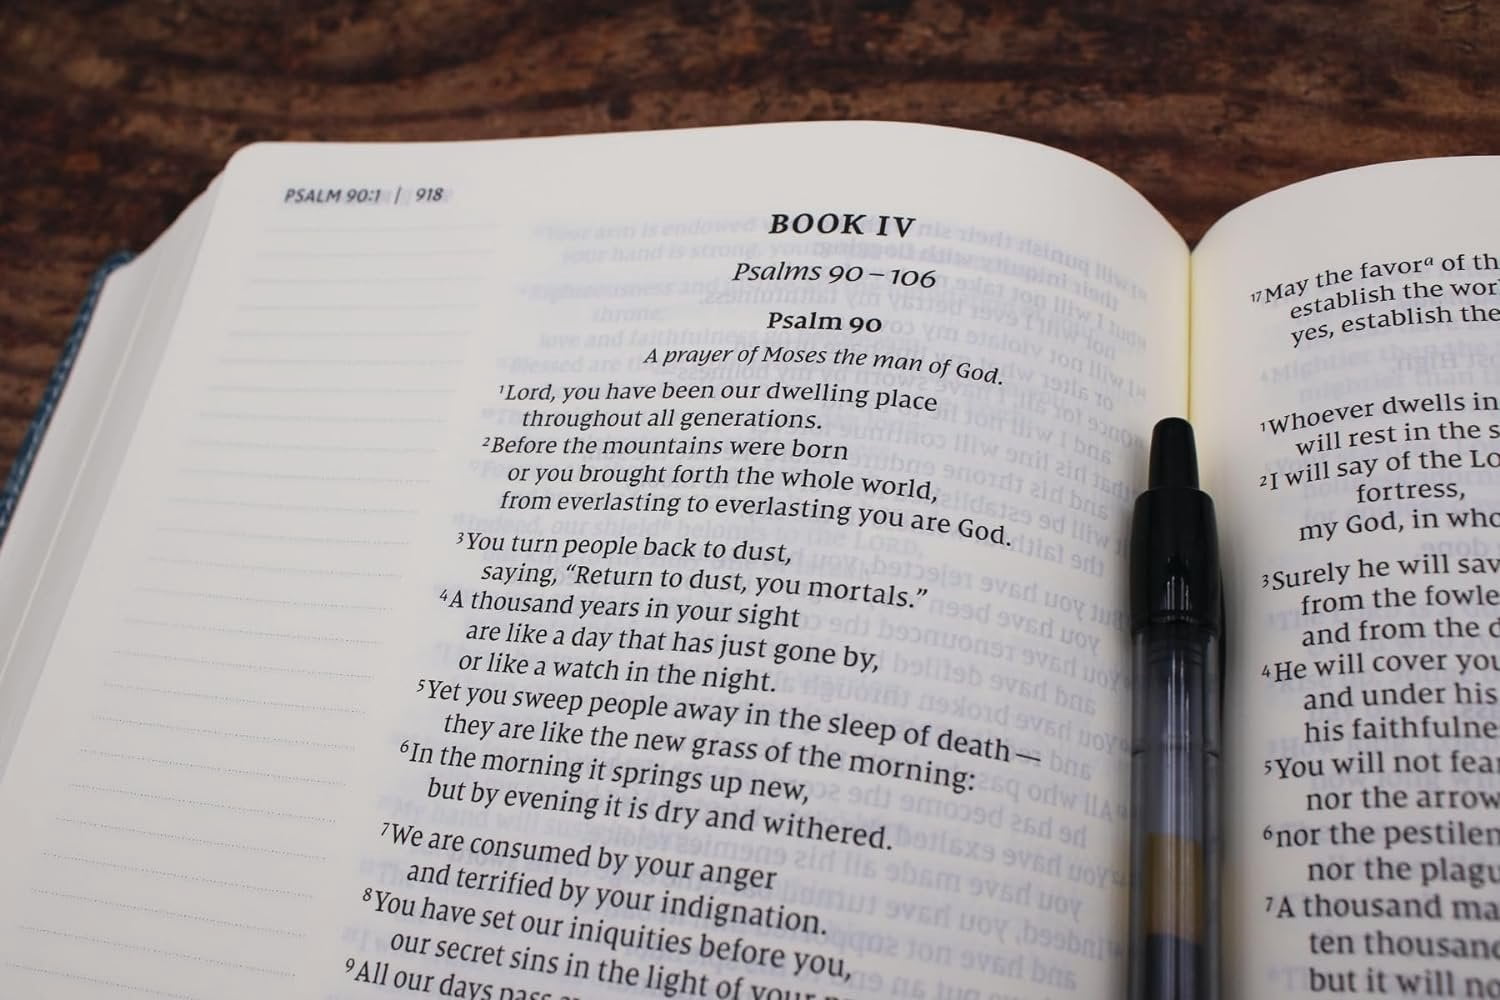 PSALM 90:1 | 918
BOOK IV
Psalms 90–106
Psalm 90
A prayer of Moses the man of God.
1Lord, you have been our dwelling place
throughout all generations.
2Before the mountains were born
or you brought forth the whole world,
from everlasting to everlasting you are God.
3You turn people back to dust,
saying, “Return to dust, you mortals.”
4A thousand years in your sight
are like a day that has just gone by,
or like a watch in the night.
5Yet you sweep people away in the sleep of death—
they are like the new grass of the morning:
6In the morning it springs up new,
but by evening it is dry and withered.
7We are consumed by your anger
and terrified by your indignation.
8You have set our iniquities before you,
our secret sins in the light of your
9All our days pass
17May the favorᵃ of th
establish the wor
yes, establish the
1Whoever dwells in
will rest in the s
2I will say of the Lo
fortress,
my God, in who
3Surely he will sav
from the fowle
and from the d
4He will cover you
and under his
his faithfulne
5You will not fear
nor the arrow
6nor the pestilen
nor the plagu
7A thousand ma
ten thousand
but it will no